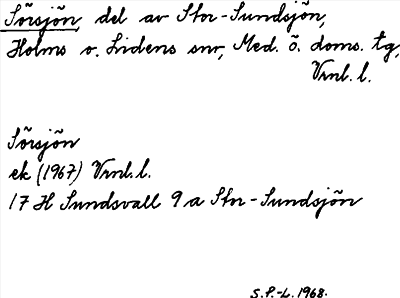 Sörsjön, del av Stor-Sundsjön,
Holms o. Lidens snr, Med. ö. doms. tg,
Vrnl. l.
Sörsjön
ek (1967) Vrnl. l.
17 H Sundsvall 9 a Stor-Sundsjön
S.P.-L. 1968.